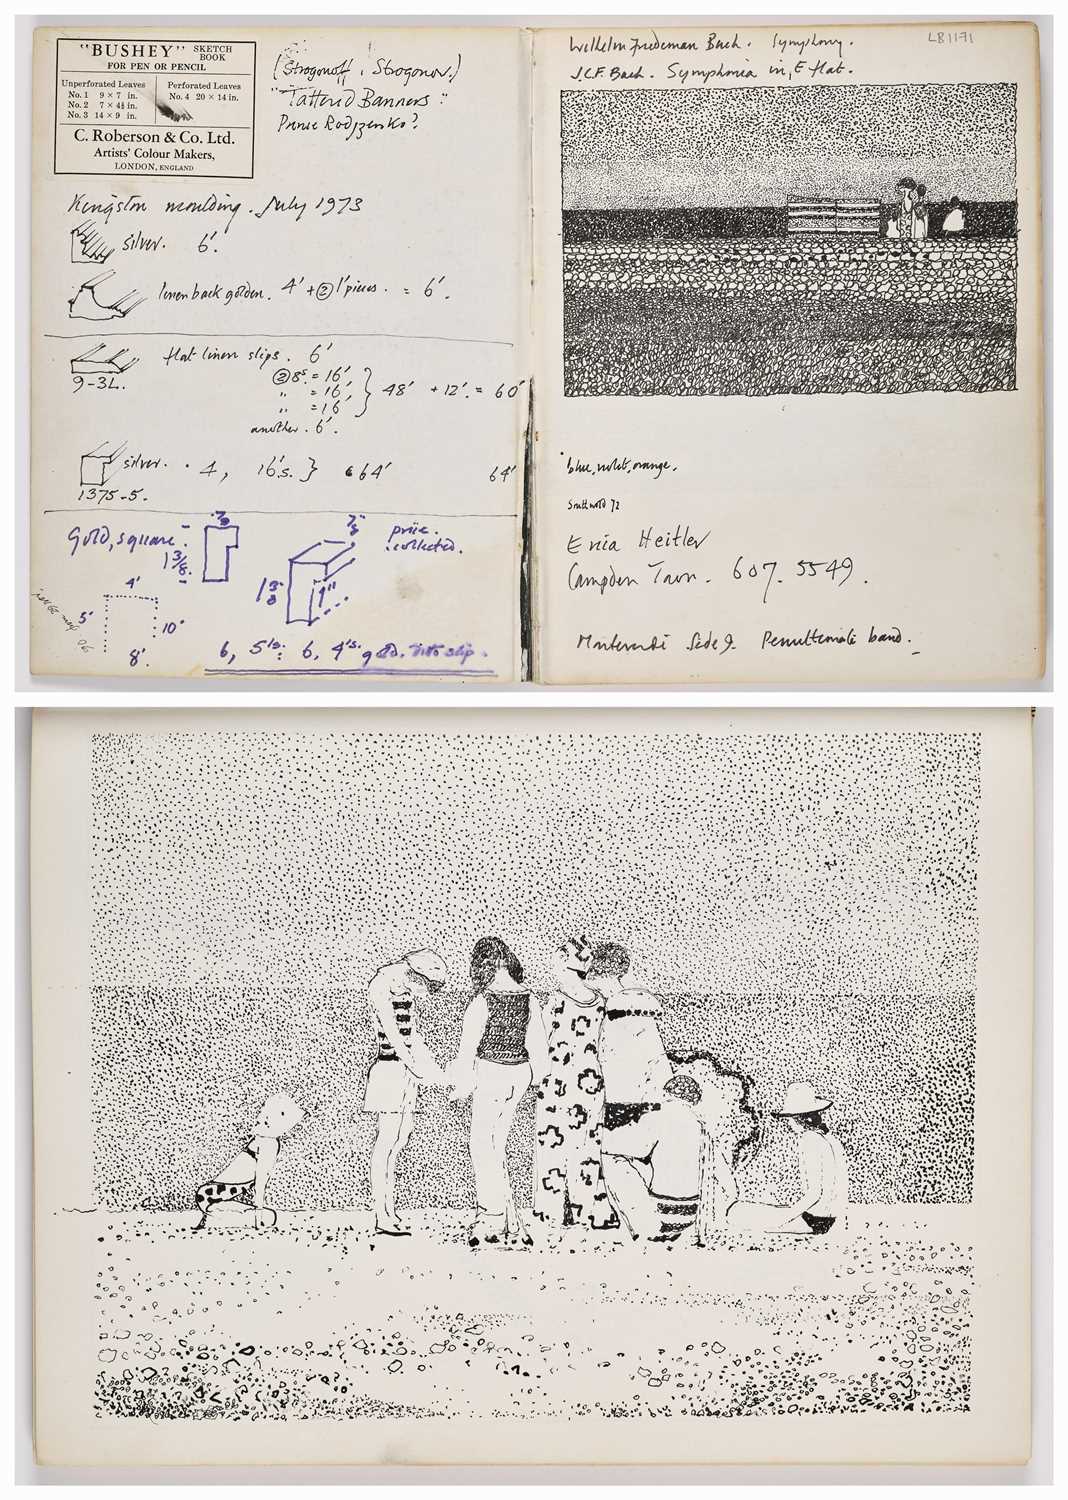 "BUSHEY" SKETCH BOOK
FOR PEN OR PENCIL
Unperforated Leaves
No. 1 9 × 7 in.
No. 2 7 × 4½ in.
No. 3 14 × 9 in.
Perforated Leaves
No. 4 20 × 14 in.
C. Roberson & Co. Ltd.
Artists' Colour Makers,
LONDON, ENGLAND
(Strogonoff, Strogonov.)
"Tattered Banners."
Prince Rodzenko?
Kingston moulding. July 1973
silver. 6'.
linen back golden. 4' + ② 1' pieces. = 6'.
flat linen slips. 6'
9-3L.
② 8s. = 16'
" = 16'
" = 16'
} 48' + 12'. = 60'
another. 6'.
silver. 4, 16's. } 64' 64'
1375-5.
Gold, square.
7/8
1 3/8.
7/8"
1 3/8
1"
price.
collected.
4'
5'
10"
8'.
6, 5's: 6, 4's. gold. Ditto slip.
Wilhelm Friedeman Bach. Symphony.
LB1171
J.C.F. Bach. Symphonia in E flat.
blue, violet, orange.
Southwold 72
Erica Heitler
Campden Town. 607. 5549.
Monteverdi Side 9. Penultimate band.